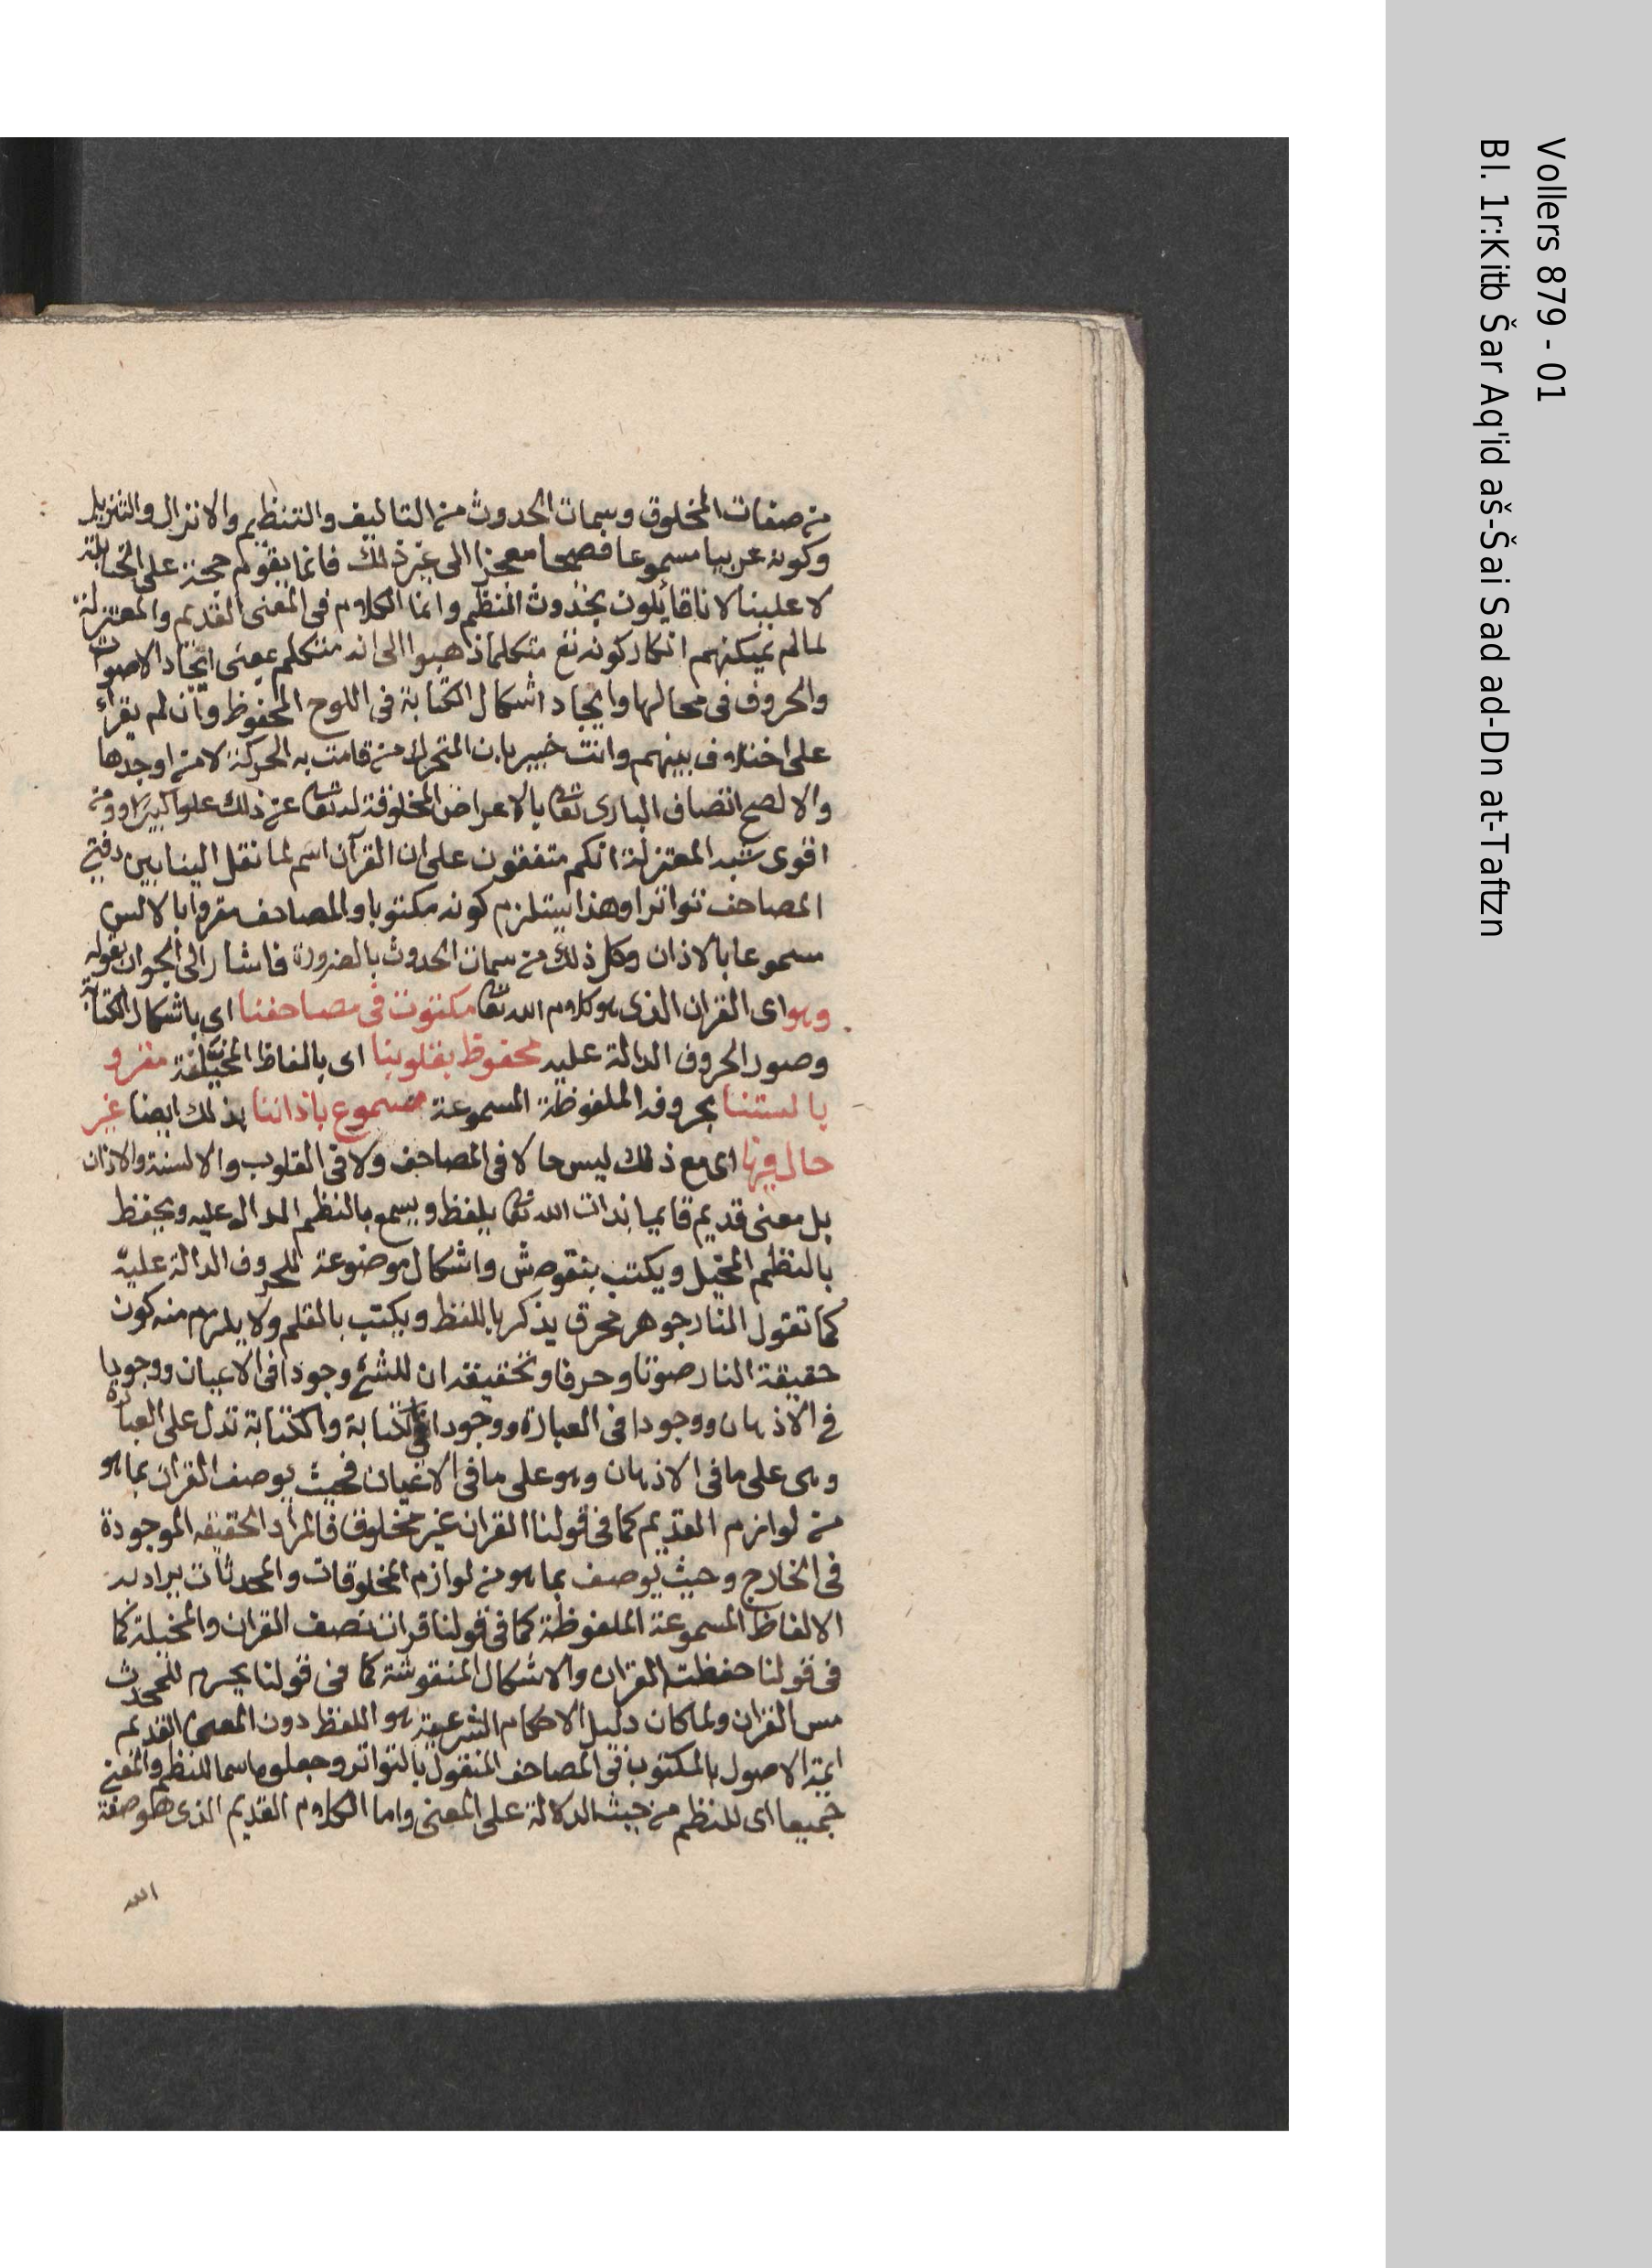 من صفات المخلوق وسمات الحدوث من التاليف والتنظيم والانزال والتنزيل
وكونه عربيا مسموعا فصيحا معجزا الى غير ذلك فانما يقوم حجة على الحنابلة
لا علينا لانا قائلون بحدوث النظم وانما الكلام فى المعنى القديم والمعتزلة
لما لم يمكنهم انكار كونه تع متكلما ذهبوا الى انه متكلم بمعنى ايجاد الاصوات
والحروف فى محالها وايجاد اشكال الكتابة فى اللوح المحفوظ وان لم يقراء
على اختلاف بينهم وانت خبير بان المتحرك من قامت به الحركة لا من اوجدها
والا لصح اتصاف البارى تعا بالاعراض المخلوقة له تعا عن ذلك علوا كبيرا ومن
اقوى شبه المعتزلة انكم متفقون على ان القرآن اسم لما نقل الينا بين دفتى
المصاحف تواترا وهذا يستلزم كونه مكتوبا والمصاحف مقروا بالالسن
سموعا بالاذان وكل ذلك من سمات الحدوث بالضرورة فاشار الى الجواب بقوله
وهو اى القران الذى هو كلام الله تعا مكتوب فى مصاحفنا اى باشكال الكتابة
وصور الحروف الدالة عليه محفوظ بقلوبنا اى بالفاظ المخيلة مقرو
بالستنا بحروفه الملفوظة المسموعة مسموع باذاننا بذلك ايضا غير
حال فيها اى مع ذلك ليس حالا فى المصاحف ولا فى القلوب والالسنة والاذان
بل معنى قديم قايما بذات الله تعا يلفظ ويسمع بالنظم الدال عليه ويحفظ
بالنظم المخيل ويكتب بنقوش واشكال موضوعة للحروف الدالة عليه
كما تقول النار جوهر محرق يذكر باللفظ ويكتب بالقلم ولا يلزم منه كون
حقيقة النار صوتا وحرفا وتحقيقه ان للشئ وجودا فى الاعيان ووجوديا
فى الاذهان ووجودا فى العبارة ووجودا فى الكتابة والكتابة تدل على العبارة
وهى على ما فى الاذهان وهو على ما فى الاعيان فحيث يوصف القران بما هو
من لوازم القديم كما فى قولنا القران غير مخلوق فالمراد الحقيقه الموجودة
فى الخارج وحيث يوصف بما هو من لوازم المخلوقات والمحدثات يراد به
الالفاظ المسموعة الملفوظة كما فى قولنا قرات نصف القران والمخيلة كما
فى قولنا حفظت القران والاشكال المنقوشة كما فى قولنا يحرم للمحدث
مس القران ولما كان دليل الاحكام الشرعية هو اللفظ دون المعنى القديم
ايمة الاصول بالمكتوب فى المصاحف المنقول بالتواتر وجعلوه اسما للنظم والمعنى
جميعا اى للنظم من حيث الدلالة على المعنى واما الكلام القديم الذى هو صفة
الله
Vollers 879 - 01
Bl. 1r:Kitb Šar Aq'id aš-Šai Sad ad-Dn at-Taftzn